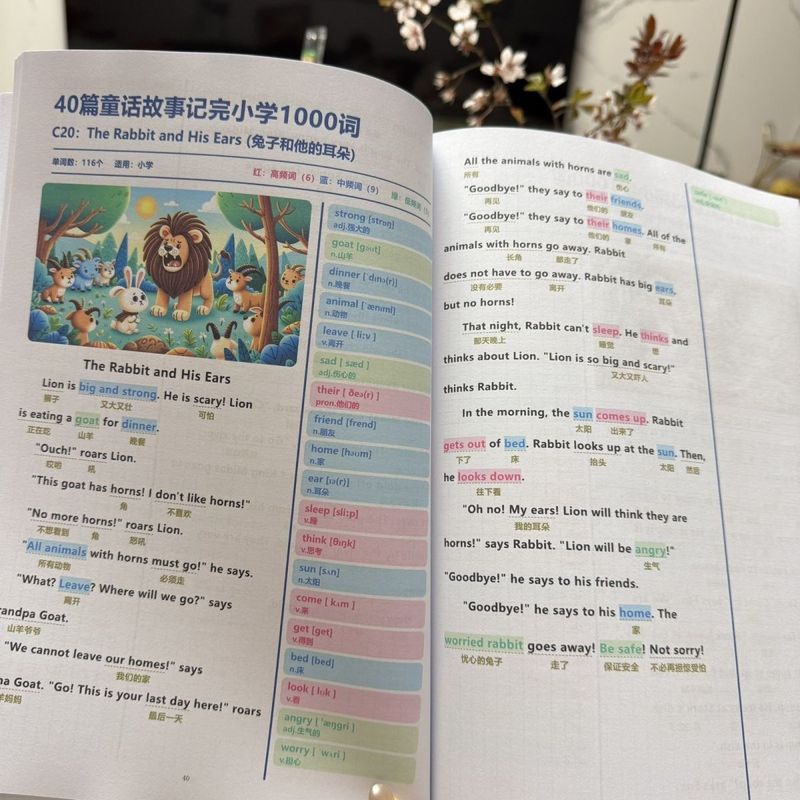 40篇童话故事记完小学1000词
C20: The Rabbit and His Ears (兔子和他的耳朵)
单词数：116个 适用：小学
红：高频词（6） 蓝：中频词（9）
The Rabbit and His Ears
Lion is big and strong. He is scary! Lion
狮子 又大又壮 可怕
is eating a goat for dinner.
正在吃 山羊 晚餐
"Ouch!" roars Lion.
哎哟 吼
"This goat has horns! I don't like horns!"
角 不喜欢
"No more horns!" roars Lion.
不想看到 角 怒吼
"All animals with horns must go!" he says.
所有动物 必须走
"What? Leave? Where will we go?" says
离开
randpa Goat.
山羊爷爷
"We cannot leave our homes!" says
我们的家
na Goat. "Go! This is your last day here!" roars
羊妈妈 最后一天
40
strong [strɒŋ]
adj.强大的
goat [ɡəʊt]
n.山羊
dinner [ˈdɪnə(r)]
n.晚餐
animal [ˈænɪml]
n.动物
leave [liːv]
v.离开
sad [sæd]
adj.伤心的
their [ðeə(r)]
pron.他们的
friend [frend]
n.朋友
home [həʊm]
n.家
ear [ɪə(r)]
n.耳朵
sleep [sliːp]
v.睡
think [θɪŋk]
v.思考
sun [sʌn]
n.太阳
come [kʌm]
v.来
get [ɡet]
v.得到
bed [bed]
n.床
look [lʊk]
v.看
angry [ˈæŋɡri]
adj.生气的
worry [ˈwʌri]
v.担心
All the animals with horns are sad.
所有 伤心
"Goodbye!" they say to their friends.
再见 他们的 朋友
"Goodbye!" they say to their homes. All of the
再见 他们的 家 所有
animals with horns go away. Rabbit
长角 都走了
does not have to go away. Rabbit has big ears,
没有必要 离开 耳朵
but no horns!
That night, Rabbit can't sleep. He thinks and
那天晚上 睡觉 想
thinks about Lion. "Lion is so big and scary!"
又大又吓人
thinks Rabbit.
In the morning, the sun comes up. Rabbit
太阳 出来了
gets out of bed. Rabbit looks up at the sun. Then,
下了 床 抬头 太阳 然后
he looks down.
往下看
"Oh no! My ears! Lion will think they are
我的耳朵
horns!" says Rabbit. "Lion will be angry!"
生气
"Goodbye!" he says to his friends.
"Goodbye!" he says to his home. The
家
worried rabbit goes away! Be safe! Not sorry!
忧心的兔子 走了 保证安全 不必再担惊受怕